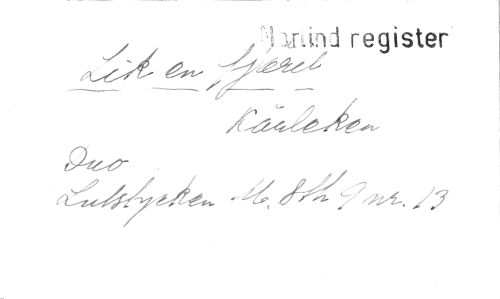 Norlind register
Lik en fjäril
Kärleken
Duo
Lutstycken M. 8th 9 nr. 13